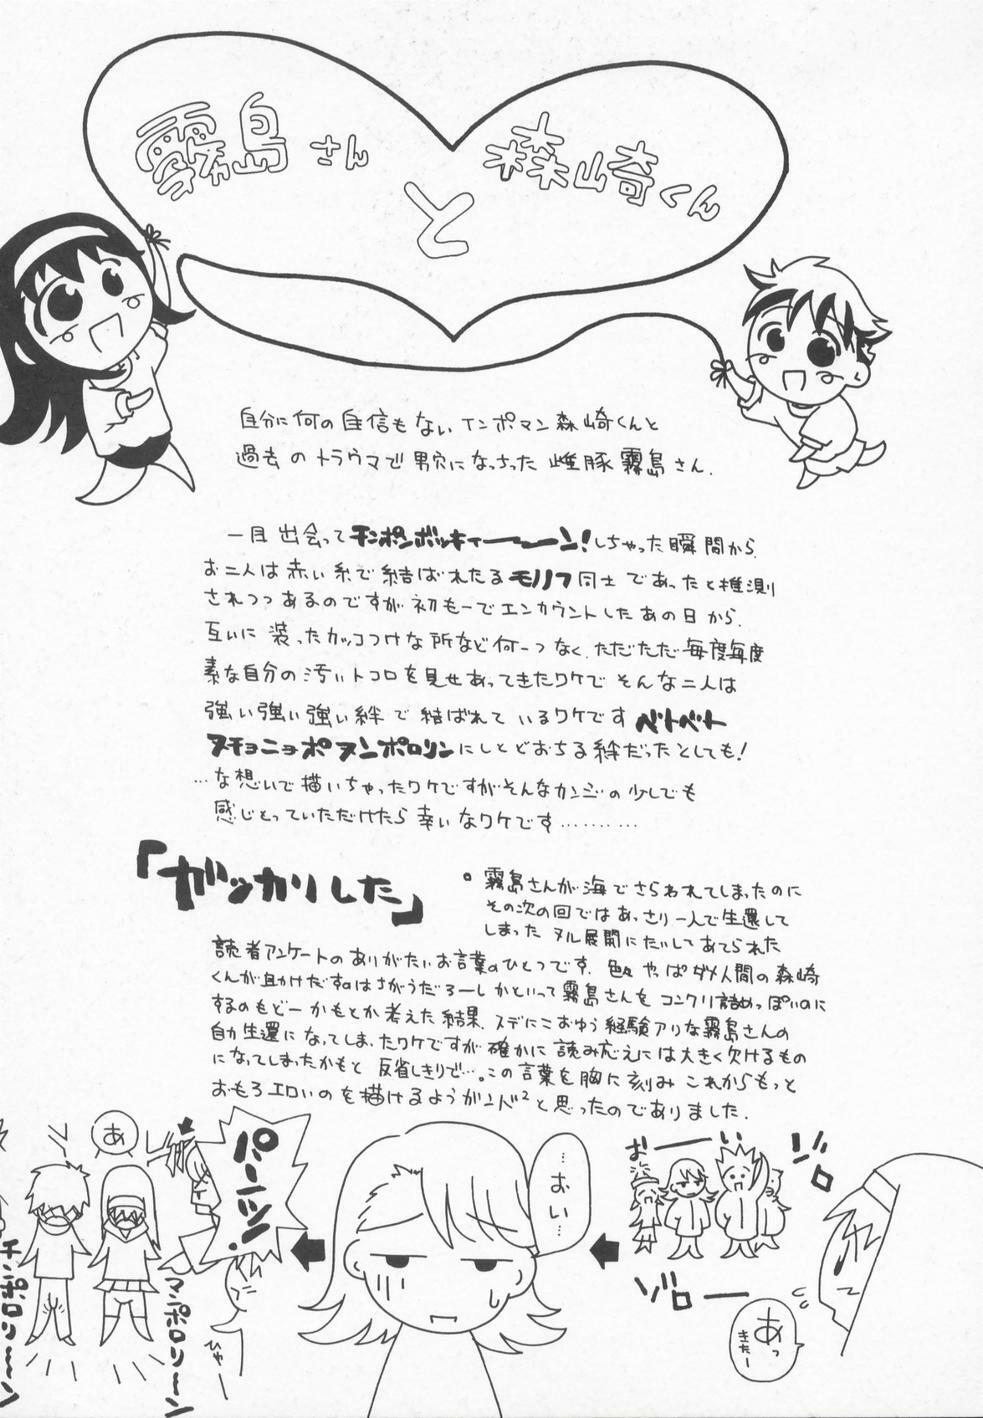 霧島さん
と
森崎くん
自分に何の自信もないインポマン森崎くんと
過去のトラウマで男穴になっちった雌豚霧島さん.
一目出会ってチンポンボッキィーーーン!しちゃった瞬間から、
お二人は赤い糸で結ばれたるモノノフ同士であったと推測
されつつあるのですが初もーでエンカウントしたあの日から、
互いに装ったカッコつけな所など何一つなく、ただただ毎度毎度
素な自分の汚いトコロを見せあってきたワケでそんな二人は
強い強い強い絆で結ばれているワケですベトベト
ヌチョニョポヌンポロリンにしとどおちる絆だったとしても!
…な想いで描いちゃったワケですがそんなカンジの少しでも
感じとっていただけたら幸いなワケです………
「ガッカリした」
。霧島さんが海でさらわれてしまったのに
その次の回ではあっさり一人で生還して
しまったヌル展開にたいしてあてられた
読者アンケートのありがたいお言葉のひとつです. 色々やっぱダメ人間の森崎
くんが助けだすのはさがうだろーしかといって霧島さんをコンクリ詰めっぽいのに
するのもどーかもとか考えた結果、スデにこおゆう経験アリな霧島さんの
自力生還になってしまったワケですが確かに読み応えには大きく欠けるもの
になってしまったかもと反省しきりで…。この言葉を胸に刻みこれからもっと
おもろエロいのを描けるようがンバ²と思ったのでありました.
おーーい
ゾロ
ゾロー
あっ
きたー
…おい…
パーーン!
ひゃー
あ
マンポロリーーン
チンポロリーーン